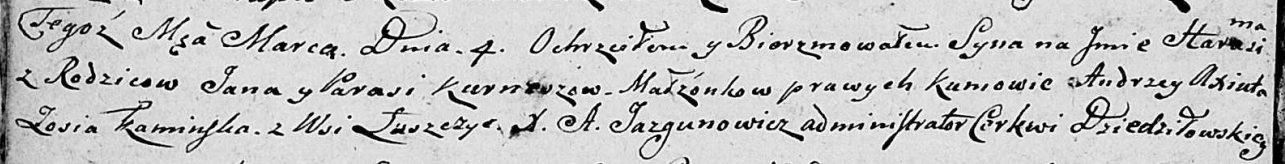 Tegoż Mſã Marca. Dnia. 4. Ochrzciłem y Bierzmowałem. Syna na Jmie Harasima
z Rodzicow Jana y Parasi Kurneszow. Małżonkow prawych Kumowie Andrzey Axiuta
Zosia Kamińſka. z Wsi Łuszczyc. X. A. Jazgunowicz adminiſtrator Cerkwi Dziedziłowskiey